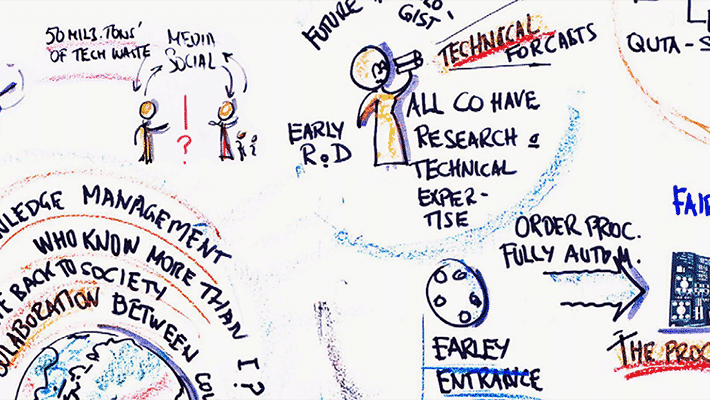 50 MILJ. TONS'
OF TECH WASTE
MEDIA
SOCIAL
?
FUTURE
GIST'
TECHNICAL
FORCASTS
EARLY
R&D
ALL CO HAVE
RESEARCH &
TECHNICAL
EXPER-
TISE
QUTA-S
WLEDGE MANAGEMENT
WHO KNOW MORE THAN I?
E BACK TO SOCIETY
OLLABORATION BETWEEN CO
ORDER PROC.
FULLY AUTOM.
FAI
EARLEY
ENTRANCE
THE PROC